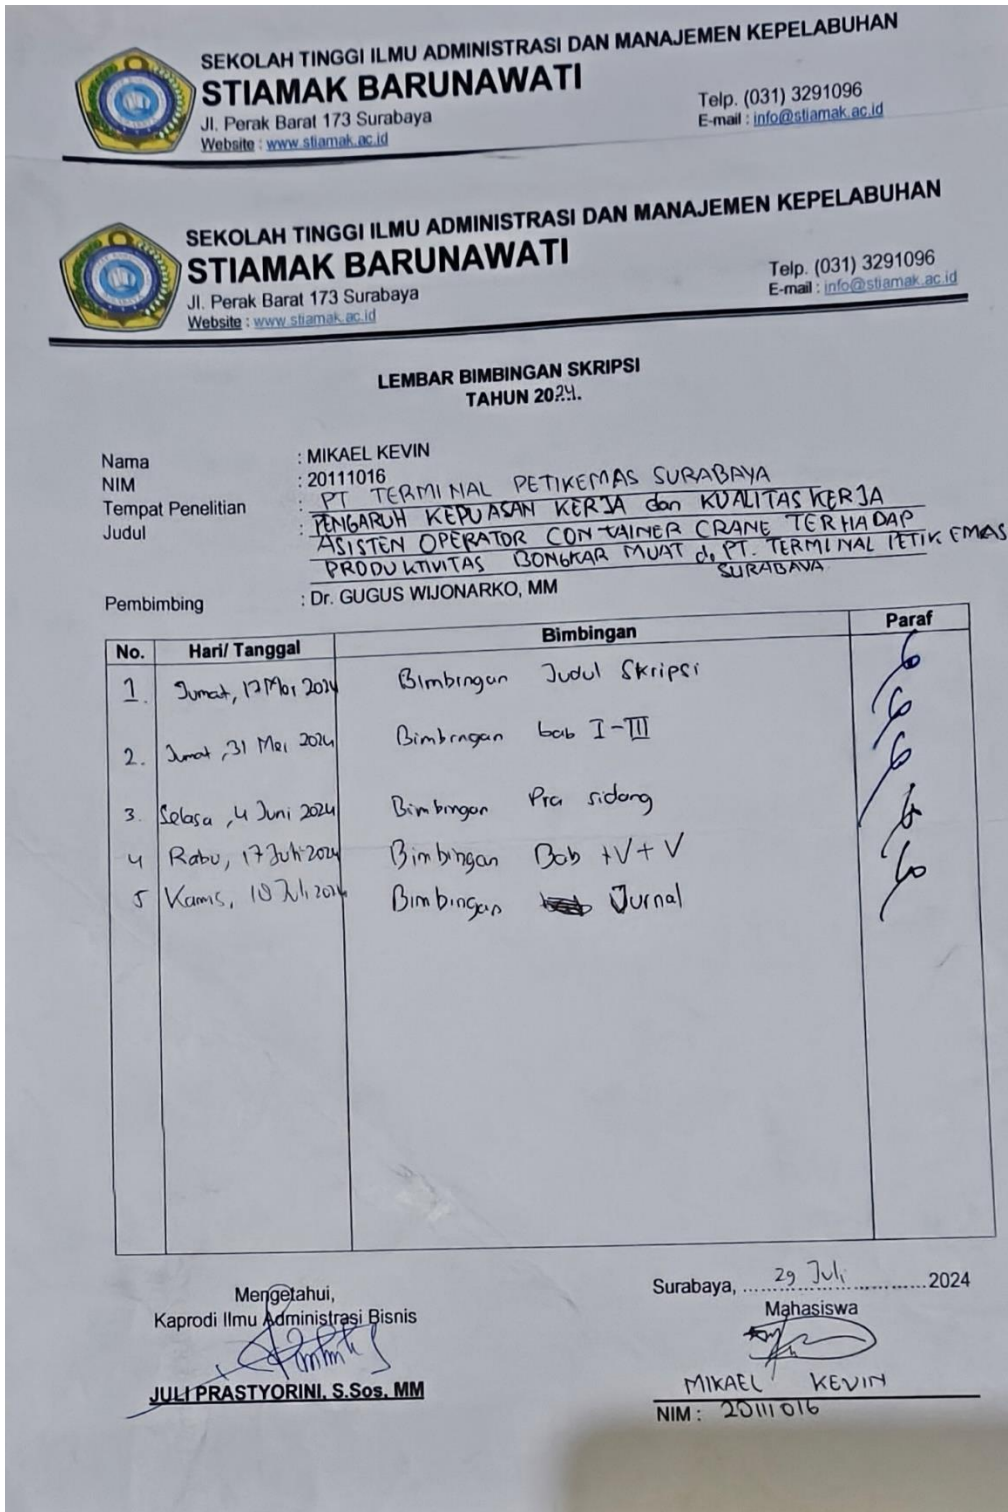 SEKOLAH TINGGI ILMU ADMINISTRASI DAN MANAJEMEN KEPELABUHAN
STIAMAK BARUNAWATI
Jl. Perak Barat 173 Surabaya
Website : www.stiamak.ac.id
Telp. (031) 3291096
E-mail : info@stiamak.ac.id
SEKOLAH TINGGI ILMU ADMINISTRASI DAN MANAJEMEN KEPELABUHAN
STIAMAK BARUNAWATI
Jl. Perak Barat 173 Surabaya
Website : www.stiamak.ac.id
Telp. (031) 3291096
E-mail : info@stiamak.ac.id
LEMBAR BIMBINGAN SKRIPSI
TAHUN 2024.
Nama : MIKAEL KEVIN
NIM : 20111016
Tempat Penelitian : PT TERMINAL PETIKEMAS SURABAYA
Judul : PENGARUH KEPUASAN KERJA dan KUALITAS KERJA
ASISTEN OPERATOR CONTAINER CRANE TERHADAP
PRODUKTIVITAS BONGKAR MUAT di PT. TERMINAL PETIKEMAS
SURABAYA
Pembimbing : Dr. GUGUS WIJONARKO, MM
No. Hari/ Tanggal Bimbingan Paraf
1. Jumat, 17 Mei 2024 Bimbingan Judul Skripsi
2. Jumat, 31 Mei 2024 Bimbingan bab I-III
3. Selasa, 4 Juni 2024 Bimbingan Pra sidang
4 Rabu, 17 Juli 2024 Bimbingan Bab IV+V
5 Kamis, 18 Juli 2024 Bimbingan Jurnal
Mengetahui,
Kaprodi Ilmu Administrasi Bisnis
JULI PRASTYORINI, S.Sos, MM
Surabaya, 29 Juli 2024
Mahasiswa
MIKAEL KEVIN
NIM : 20111016